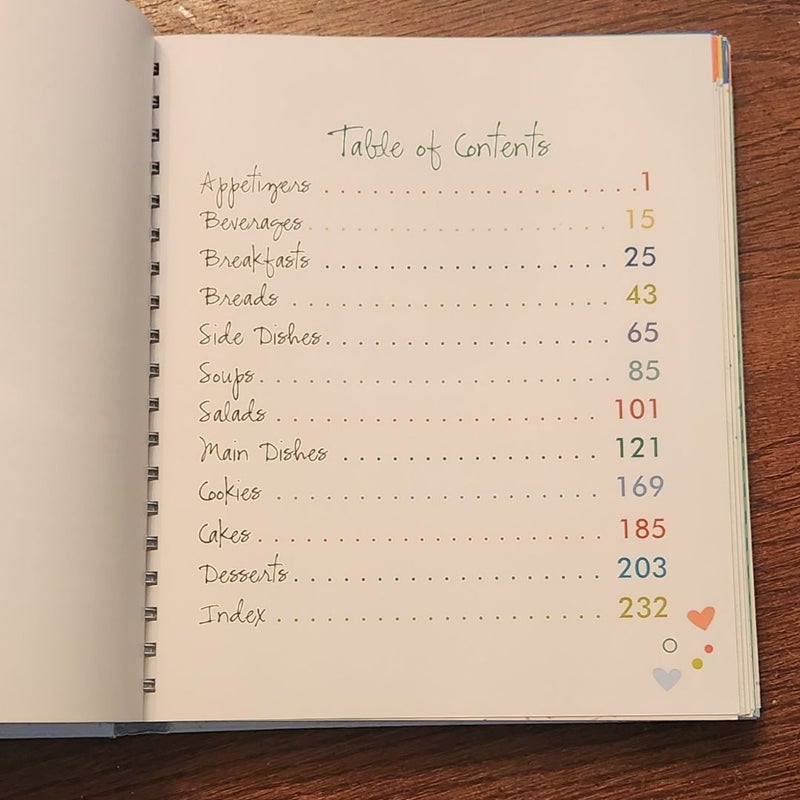 Table of Contents
Appetizers . . . . . . . . . . . . . . . . . . . . . . 1
Beverages . . . . . . . . . . . . . . . . . . . . 15
Breakfasts . . . . . . . . . . . . . . . . . . . 25
Breads . . . . . . . . . . . . . . . . . . . . . 43
Side Dishes . . . . . . . . . . . . . . . . . . . 65
Soups . . . . . . . . . . . . . . . . . . . . . . . 85
Salads . . . . . . . . . . . . . . . . . . . . . 101
Main Dishes . . . . . . . . . . . . . . . . . 121
Cookies . . . . . . . . . . . . . . . . . . . . . 169
Cakes . . . . . . . . . . . . . . . . . . . . . . . 185
Desserts . . . . . . . . . . . . . . . . . . . . 203
Index . . . . . . . . . . . . . . . . . . . . . . 232